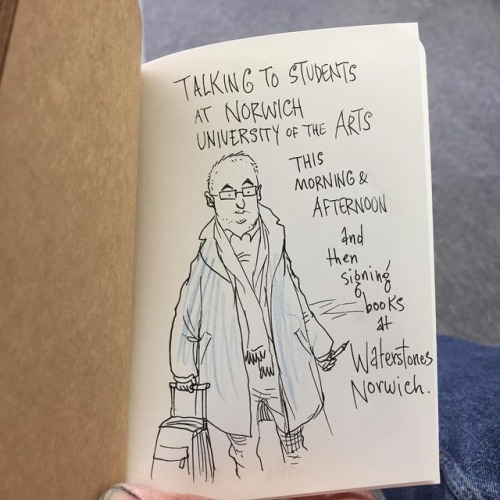 TALKING TO STUDENTS
AT NORWICH
UNIVERSITY OF THE ARTS
THIS
MORNING &
AFTERNOON
and
then
signing
books
at
Waterstones
Norwich.